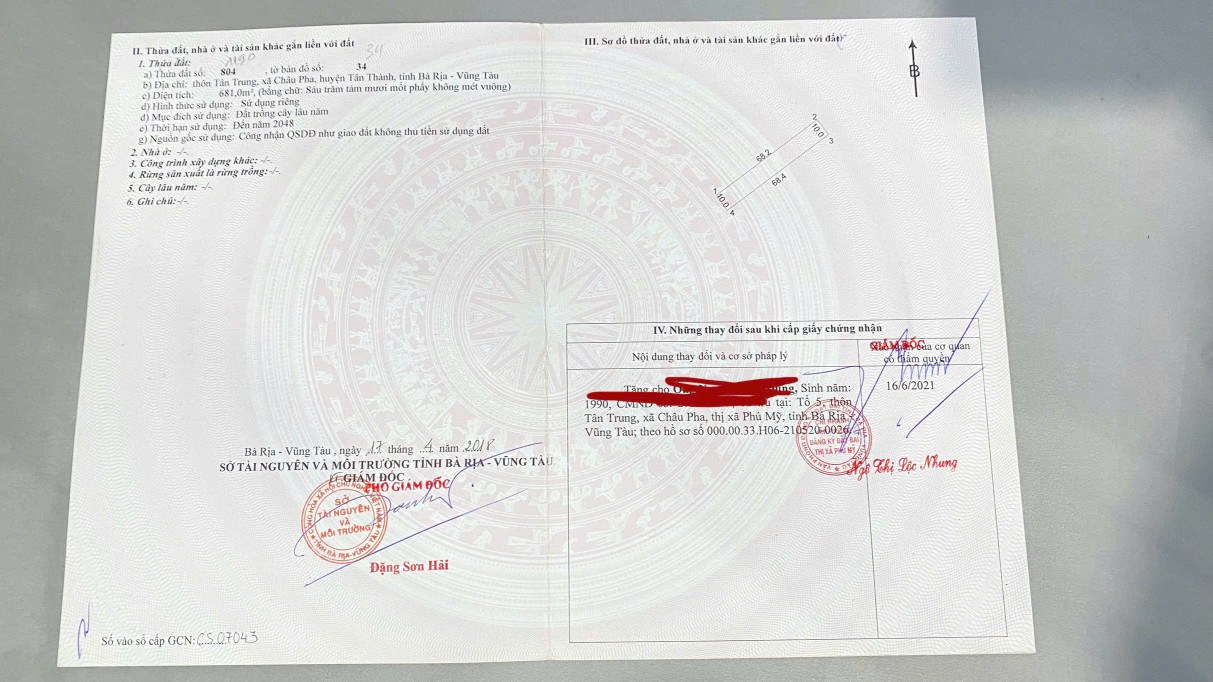 II. Thửa đất, nhà ở và tài sản khác gắn liền với đất
1. Thửa đất: 1190 34
a) Thửa đất số: 804 , tờ bản đồ số: 34
b) Địa chỉ: thôn Tân Trung, xã Châu Pha, huyện Tân Thành, tỉnh Bà Rịa - Vũng Tàu
c) Diện tích: 681,0m², (bằng chữ: Sáu trăm tám mươi mốt phẩy không mét vuông)
d) Hình thức sử dụng: Sử dụng riêng
đ) Mục đích sử dụng: Đất trồng cây lâu năm
e) Thời hạn sử dụng: Đến năm 2048
g) Nguồn gốc sử dụng: Công nhận QSDĐ như giao đất không thu tiền sử dụng đất
2. Nhà ở: -/-
3. Công trình xây dựng khác: -/-
4. Rừng sản xuất là rừng trồng:-/-
5. Cây lâu năm: -/-
6. Ghi chú:-/-
Bà Rịa - Vũng Tàu , ngày 17 tháng 4 năm 2018
SỞ TÀI NGUYÊN VÀ MÔI TRƯỜNG TỈNH BÀ RỊA - VŨNG TÀU
GIÁM ĐỐC
PHÓ GIÁM ĐỐC
CỘNG HÒA XÃ HỘI CHỦ NGHĨA VIỆT NAM
SỞ
TÀI NGUYÊN
VÀ
MÔI TRƯỜNG
TỈNH BÀ RỊA-VŨNG TÀU
Đặng Sơn Hải
Số vào sổ cấp GCN: CS07043
III. Sơ đồ thửa đất, nhà ở và tài sản khác gắn liền với đất
B
2
10.0
3
68.2
68.4
1
10.0
4
IV. Những thay đổi sau khi cấp giấy chứng nhận
Nội dung thay đổi và cơ sở pháp lý
Xác nhận của cơ quan
có thẩm quyền
GIÁM ĐỐC
Tặng cho Sinh năm:
1990, CMND tại: Tổ 5, thôn
Tân Trung, xã Châu Pha, thị xã Phú Mỹ, tỉnh Bà Rịa -
Vũng Tàu; theo hồ sơ số 000.00.33.H06-210520-0026.
16/6/2021
CHI NHÁNH
ĐĂNG KÝ ĐẤT ĐAI
THỊ XÃ PHÚ MỸ
Ngô Thị Lộc Nhung